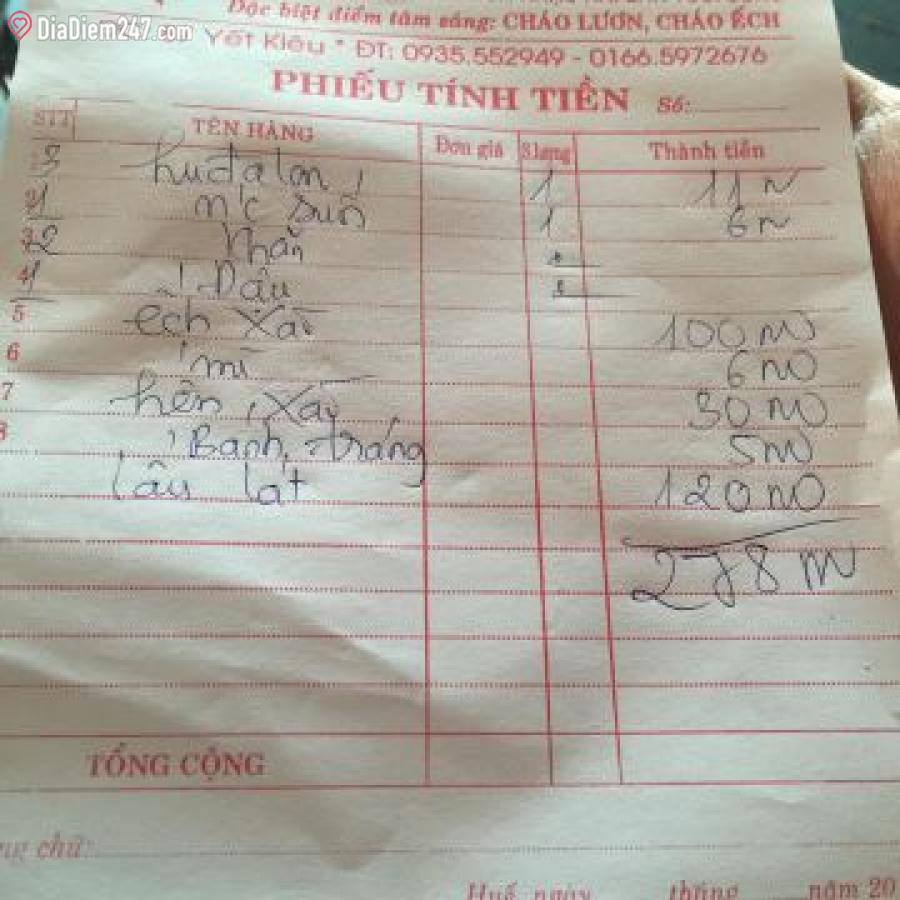 DiaDiem247.com
Đặc biệt điểm tâm sáng: CHÁO LƯƠN, CHÁO ẾCH
Yết Kiêu * ĐT: 0935.552949 - 0166.5972676
PHIẾU TÍNH TIỀN Số:
STT TÊN HÀNG Đơn giá Slượng Thành tiền
3 huđa lon 1 11
2 1 n'c suối 1 6
3 2 Khăn
4 1 Đậu
5 ếch Xào 100
6 mì 6
7 hến Xào 30
8 Banh tráng 5
lẩu lát 120
278
TỔNG CỘNG
chữ:
Huế, ngày tháng năm 20